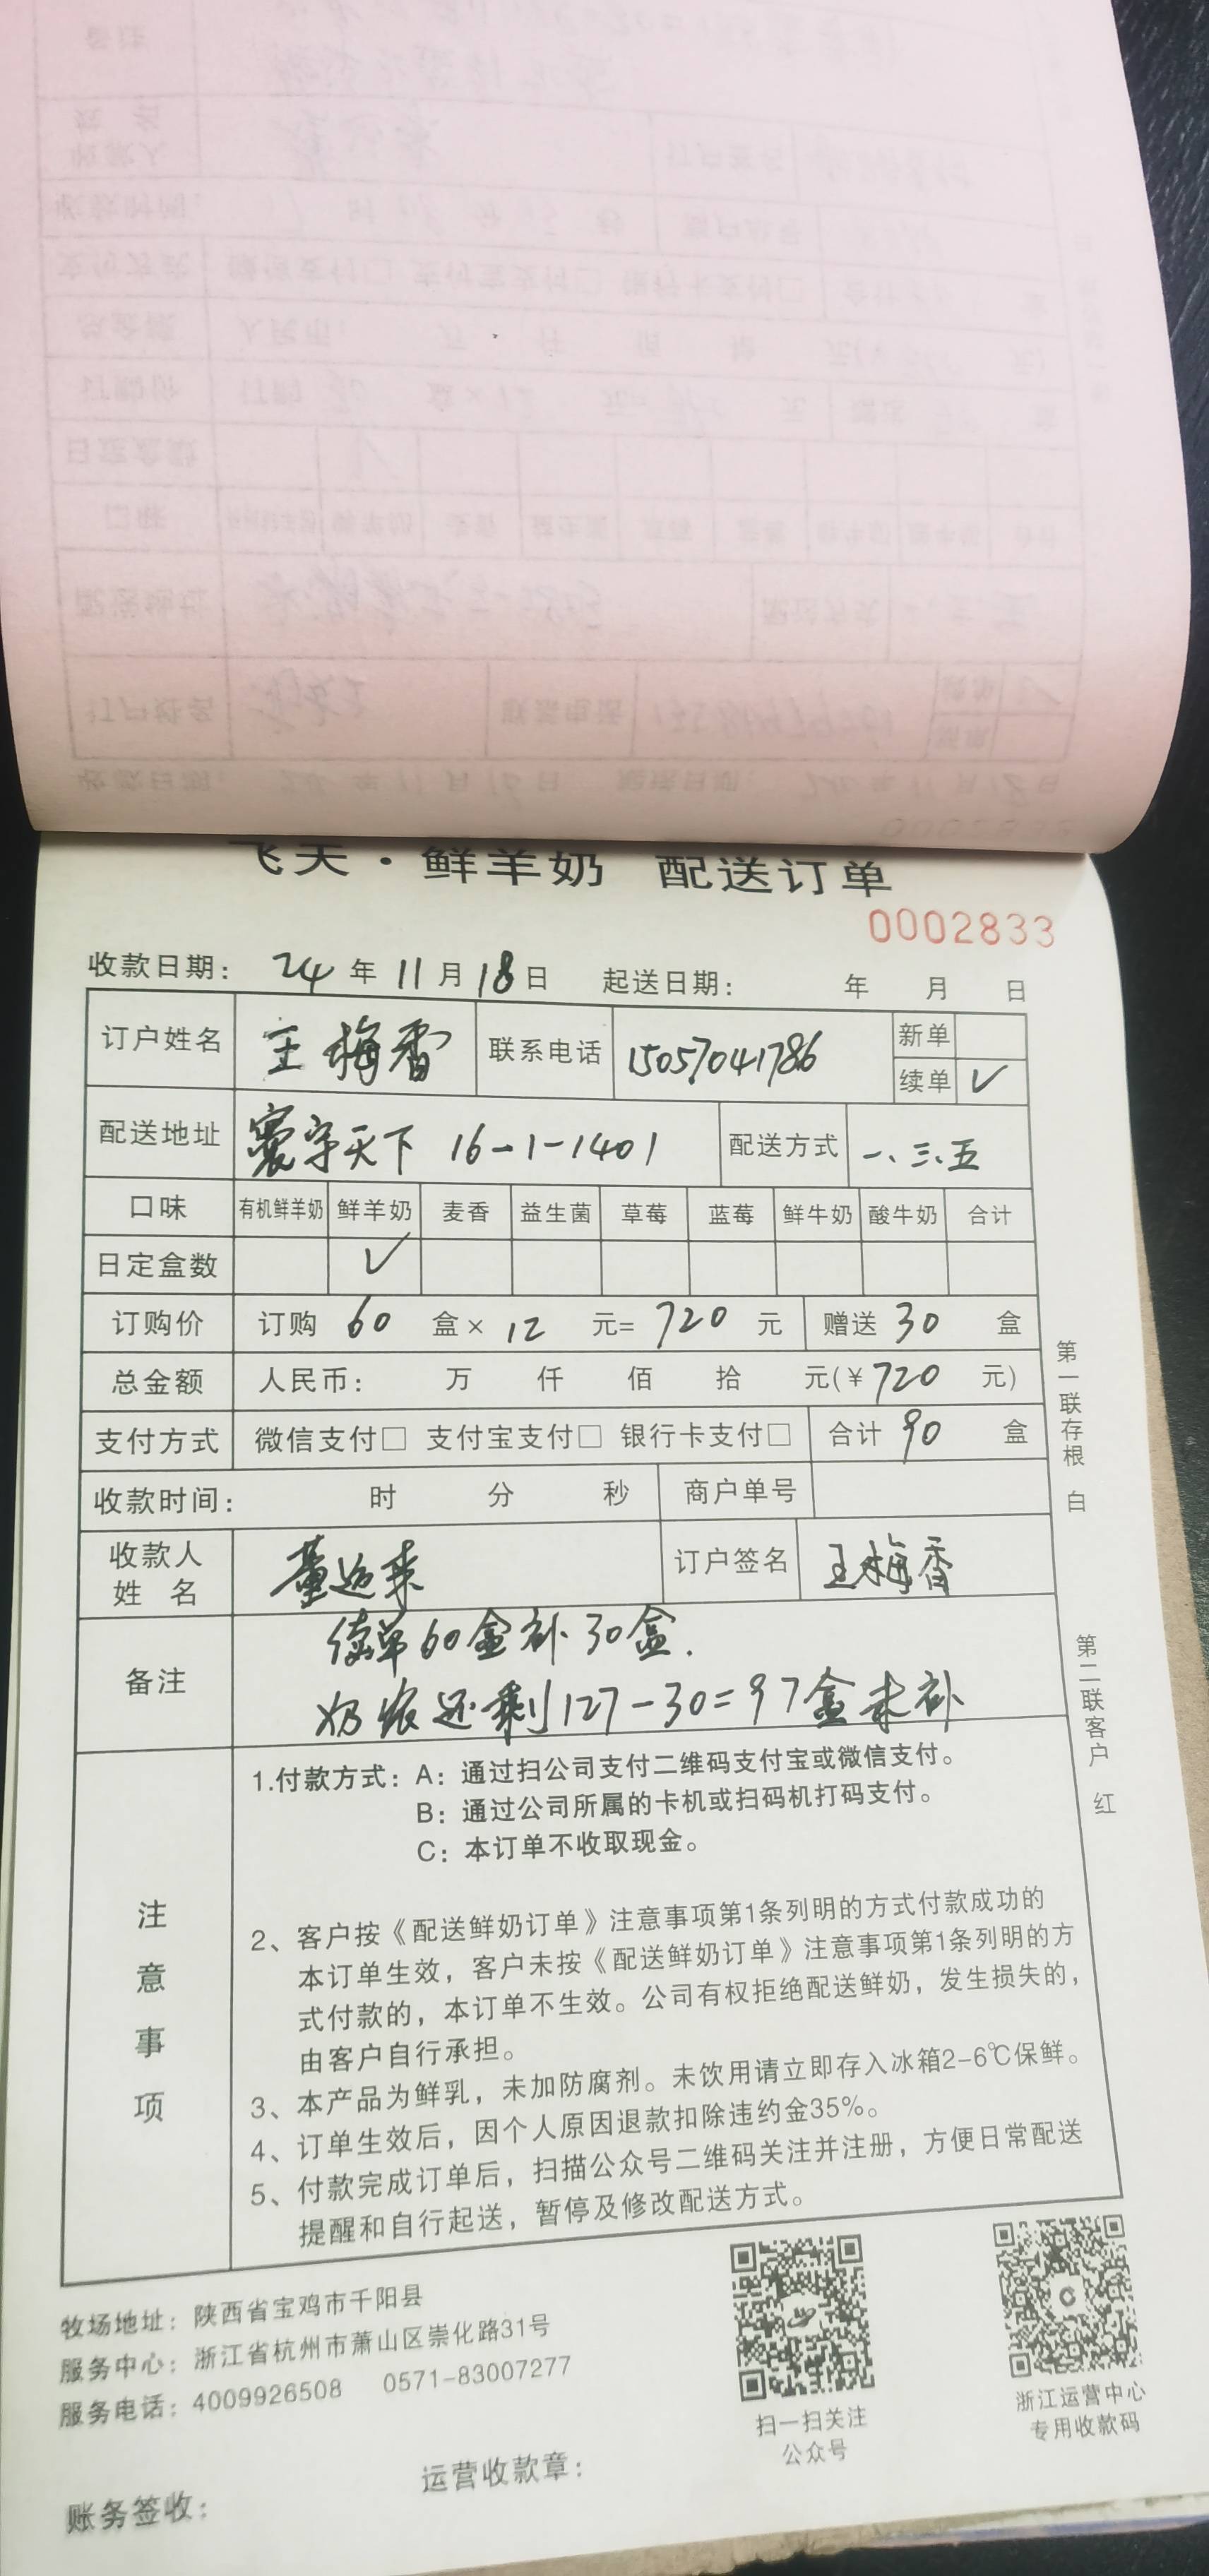 飞天·鲜羊奶 配送订单
0002833
收款日期: 24 年 11 月 18 日 起送日期: 年 月 日
订户姓名 王梅香 联系电话 15057041786 新单
续单 √
配送地址 寰宇天下 16-1-1401 配送方式 一、三、五
口味 有机鲜羊奶 鲜羊奶 麦香 益生菌 草莓 蓝莓 鲜牛奶 酸牛奶 合计
日定盒数 √
订购价 订购 60 盒× 12 元= 720 元 赠送 30 盒
总金额 人民币: 万 仟 佰 拾 元(¥ 720 元)
支付方式 微信支付□ 支付宝支付□ 银行卡支付□ 合计 90 盒
收款时间: 时 分 秒 商户单号
收款人
姓 名 董 来 订户签名 王梅香
备注 续单60盒补30盒.
奶 还剩127-30=97盒未补
注意事项
1.付款方式: A: 通过扫公司支付二维码支付宝或微信支付。
B: 通过公司所属的卡机或扫码机打码支付。
C: 本订单不收取现金。
2、客户按《配送鲜奶订单》注意事项第1条列明的方式付款成功的
本订单生效，客户未按《配送鲜奶订单》注意事项第1条列明的方
式付款的，本订单不生效。公司有权拒绝配送鲜奶，发生损失的，
由客户自行承担。
3、本产品为鲜乳，未加防腐剂。未饮用请立即存入冰箱2-6℃保鲜。
4、订单生效后，因个人原因退款扣除违约金35%。
5、付款完成订单后，扫描公众号二维码关注并注册，方便日常配送
提醒和自行起送，暂停及修改配送方式。
第一联存根 白
第二联客户 红
牧场地址: 陕西省宝鸡市千阳县
服务中心: 浙江省杭州市萧山区崇化路31号
服务电话: 4009926508 0571-83007277
扫一扫关注
公众号
浙江运营中心
专用收款码
运营收款章:
账务签收: